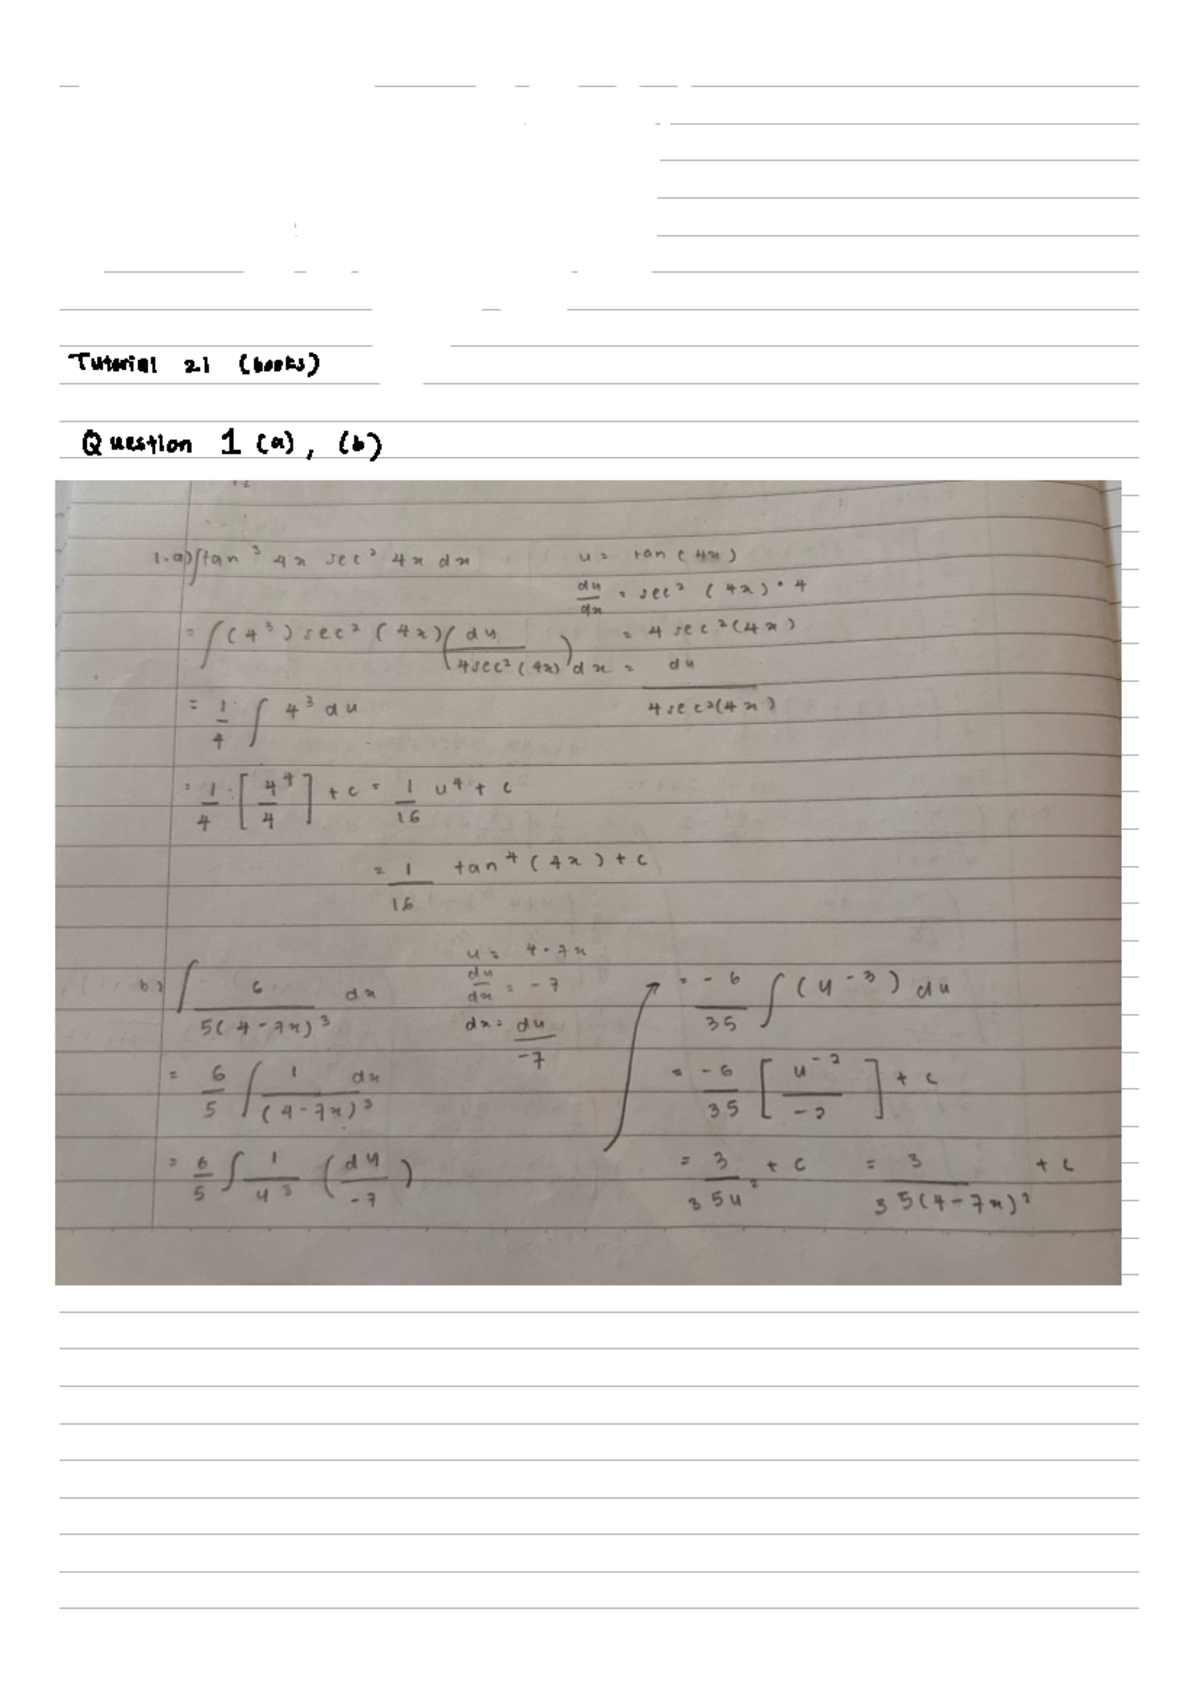 Tutorial 21 (books)
Question 1 (a), (b)
1. a) ∫tan³ 4x sec² 4x dx
u = tan(4x)
du/dx = sec² (4x) • 4
= 4 sec²(4x)
dx = du / 4sec²(4x)
= ∫(u³) sec² (4x) (du / 4sec²(4x))
= 1/4 ∫ u³ du
= 1/4 [u⁴/4] + c = 1/16 u⁴ + c
= 1/16 tan⁴ (4x) + c
b) ∫ 6 / 5(4-7x)³ dx
u = 4-7x
du/dx = -7
dx = du/-7
= 6/5 ∫ 1/(4-7x)³ dx
= 6/5 ∫ 1/u³ (du/-7)
= -6/35 ∫(u⁻³) du
= -6/35 [u⁻²/-2] + c
= 3/35u² + c = 3/35(4-7x)² + c